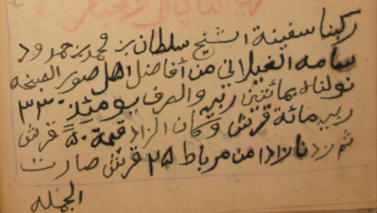 ركبنا سفينة الشيخ سلطان بن محمد بن حمدود
سامه الغيلاني من أفاضل اهل صور
نولناه بمائتين ربيه والصرف يومئذ ٣٣٠
ربيه مائة قرش وكان الزاد قيمة ٥٠ قرش
ثم زدنا زادا من مرباط ٢٥ قرش صارت
الجمله